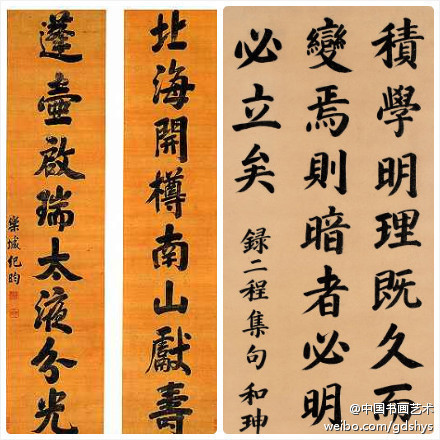 北海開樽南山獻壽
蓬壺啟瑞太液分光
樂城紀昀
積學明理既久而
變焉則暗者必明
必立矣
録二程集句 和珅
@中国书画艺术
weibo.com/gdshys